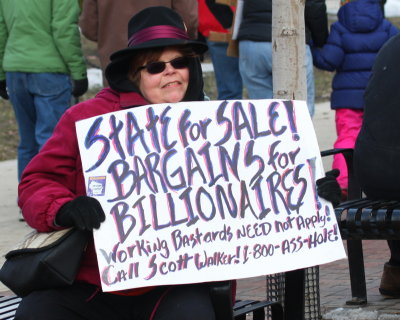 STATE for SALE!
BARGAINS for
BILLIONAIRES!
Working Bastards NEED not Apply!
CALL Scott Walker! 1-800-ASS-Hole!